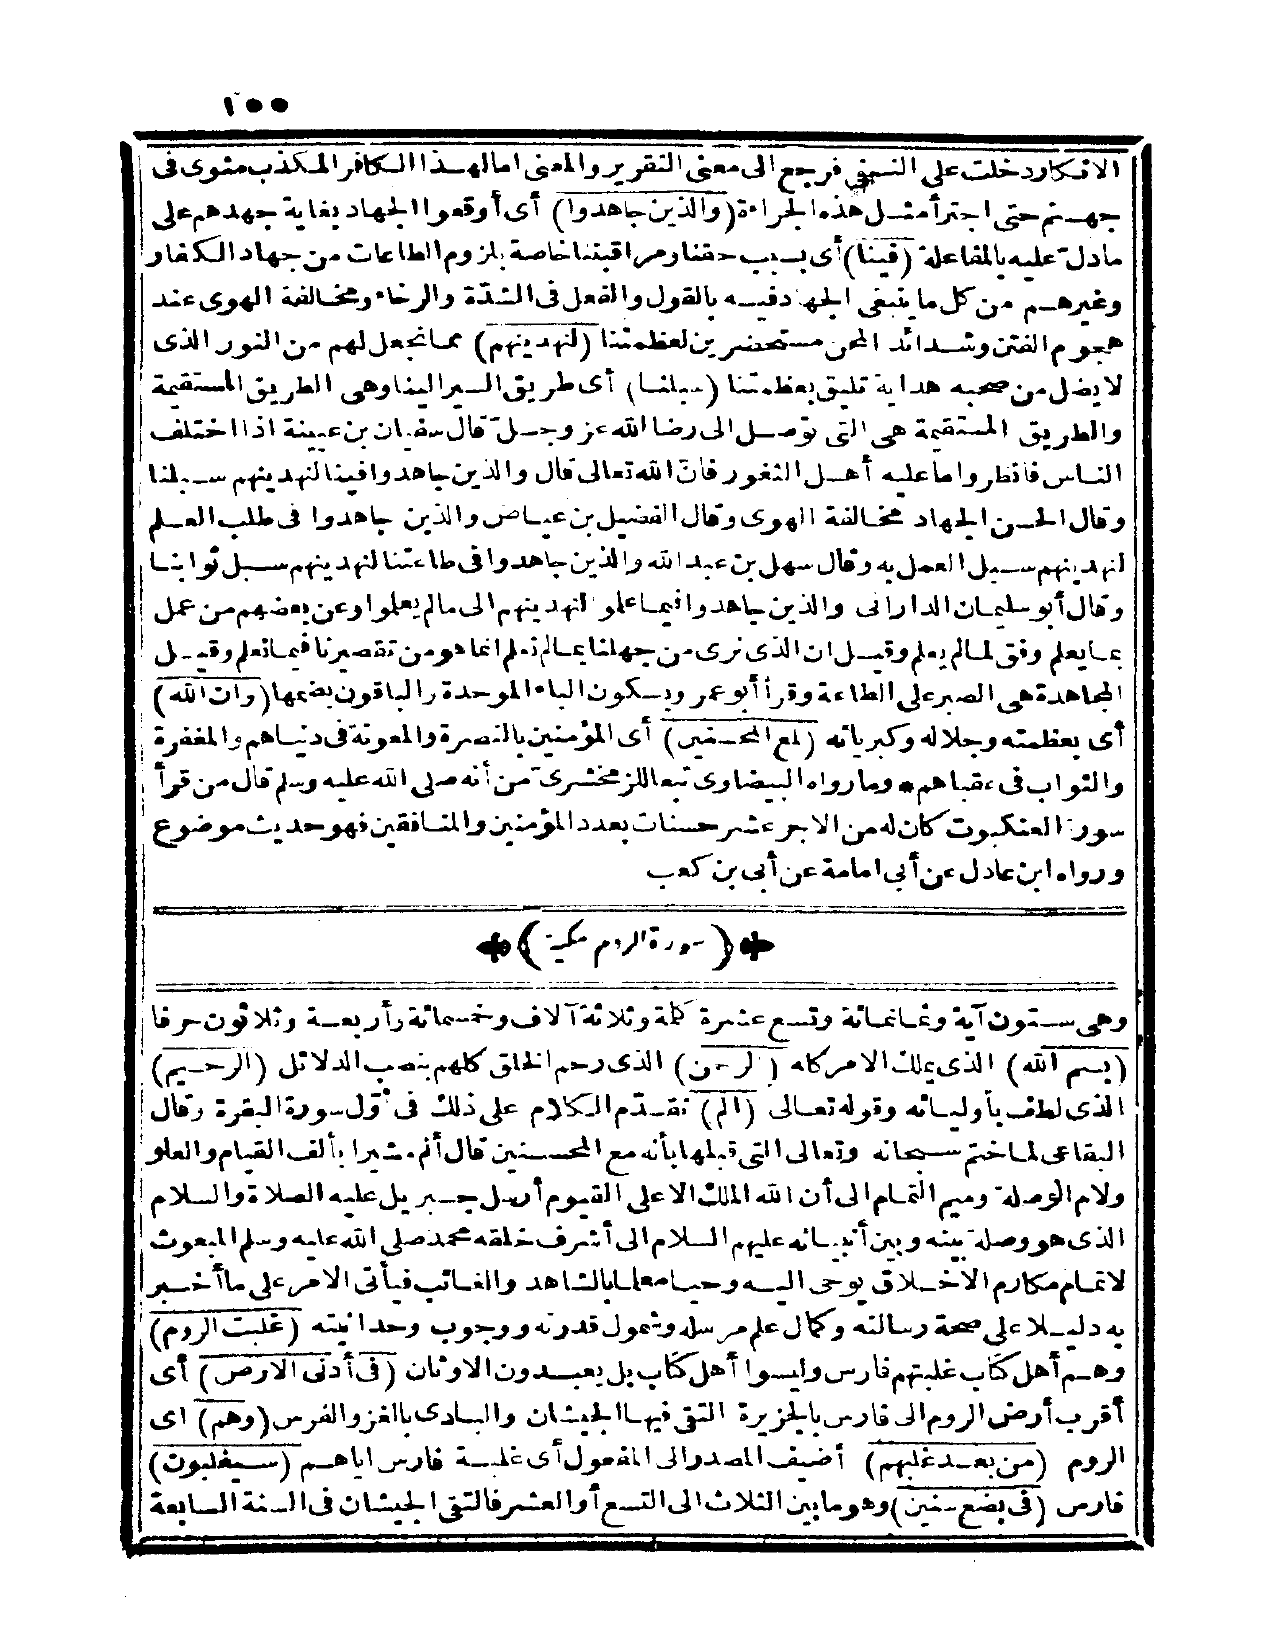 ١٥٥
الانكار دخلت على النفى فرجع الى معنى التقرير والمعنى امالهذا الكافر المكذب مثوى فى
جهنم حتى اجترأ مثل هذه الجراءة (والذين جاهدوا) أى أوقعوا الجهاد بغاية جهدهم على
مادل عليه بالمفاعلة (فينا) أى بسبب حقنا ومراقبتنا خاصة بلزوم الطاعات من جهاد الكفار
وغيرهم من كل ما ينبغى الجهاد فيه بالقول والفعل فى الشدّة والرخاء ومخالفة الهوى عند
هجوم الفتن وشدائد المحن مستحضرين لعظمتنا (لنهدينهم) مما نجعل لهم من النور الذى
لا يضل من صحبه هداية تليق بعظمتنا (سبلنا) أى طريق السير الينا وهى الطريق المستقيمة
والطريق المستقيمة هى التى توصل الى رضا الله عز وجل قال سفيان بن عيينة اذا اختلف
الناس فانظروا ما عليه أهل الثغور فانّ الله تعالى قال والذين جاهدوا فينا لنهدينهم سبلنا
وقال الحسن الجهاد مخالفة الهوى وقال الفضيل بن عياض والذين جاهدوا فى طلب العلم
لنهدينهم سبيل العمل به وقال سهل بن عبد الله والذين جاهدوا فى طاعتنا لنهدينهم سبل ثوابنا
وقال أبو سليمان الدارانى والذين جاهدوا فيما علموا لنهدينهم الى مالم يعلموا وعن بعضهم من عمل
بما يعلم وفق لما لم يعلم وقيل ان الذى نرى من جهلنا بمالم نعلم انما هو من تقصيرنا فيما نعلم وقيل
المجاهدة هى الصبر على الطاعة وقرأ أبو عمرو بسكون الباء الموحدة والباقون بضمها (وان الله)
أى بعظمته وجلاله وكبريائه (لمع المحسنين) أى المؤمنين بالنصرة والمعونة فى دنياهم والمغفرة
والثواب فى عقباهم * وما رواه البيضاوى تبعا للزمخشرى من أنه صلى الله عليه وسلم قال من قرأ
سورة العنكبوت كان له من الاجر عشر حسنات بعدد المؤمنين والمنافقين فهو حديث موضوع
ورواه ابن عادل عن أبى امامة عن أبى بن كعب
(سورة الروم مكية)
وهى ستون آية وثمانمائة وتسع عشرة كلمة وثلاثة آلاف وخمسمائة وأربعة وثلاثون حرفا
(بسم الله) الذى يملك الامر كله (الرحمن) الذى رحم الخلق كلهم بنصب الدلائل (الرحيم)
الذى لطف بأوليائه وقوله تعالى (الم) تقدّم الكلام على ذلك فى أوّل سورة البقرة وقال
البقاعى لما ختم سبحانه وتعالى التى قبلها بأنه مع المحسنين قال ألم مشيرا بألف القيام والعلو
ولام الوصلة وميم التمام الى أن الله الملك الاعلى القيوم أرسل جبريل عليه الصلاة والسلام
الذى هو وصلة بينه وبين أنبيائه عليهم السلام الى أشرف خلقه محمد صلى الله عليه وسلم المبعوث
لاتمام مكارم الاخلاق يوحى اليه وحيا معلما بالشاهد والغائب فيأتى الامر على ما أخبر
به دليلا على صحة رسالته وكمال علم مرسله وشمول قدرته ووجوب وحدانيته (غلبت الروم)
وهم أهل كتاب غلبتهم فارس وليسوا أهل كتاب بل يعبدون الاوثان (فى أدنى الارض) أى
أقرب أرض الروم الى فارس بالجزيرة التقى فيها الجيشان والبادى بالغزو الفرس (وهم) اى
الروم (من بعد غلبهم) أضيف المصدر الى المفعول أى غلبة فارس اياهم (سيغلبون)
فارس (فى بضع سنين) وهو ما بين الثلاث الى التسع أو العشر فالتقى الجيشان فى السنة السابعة